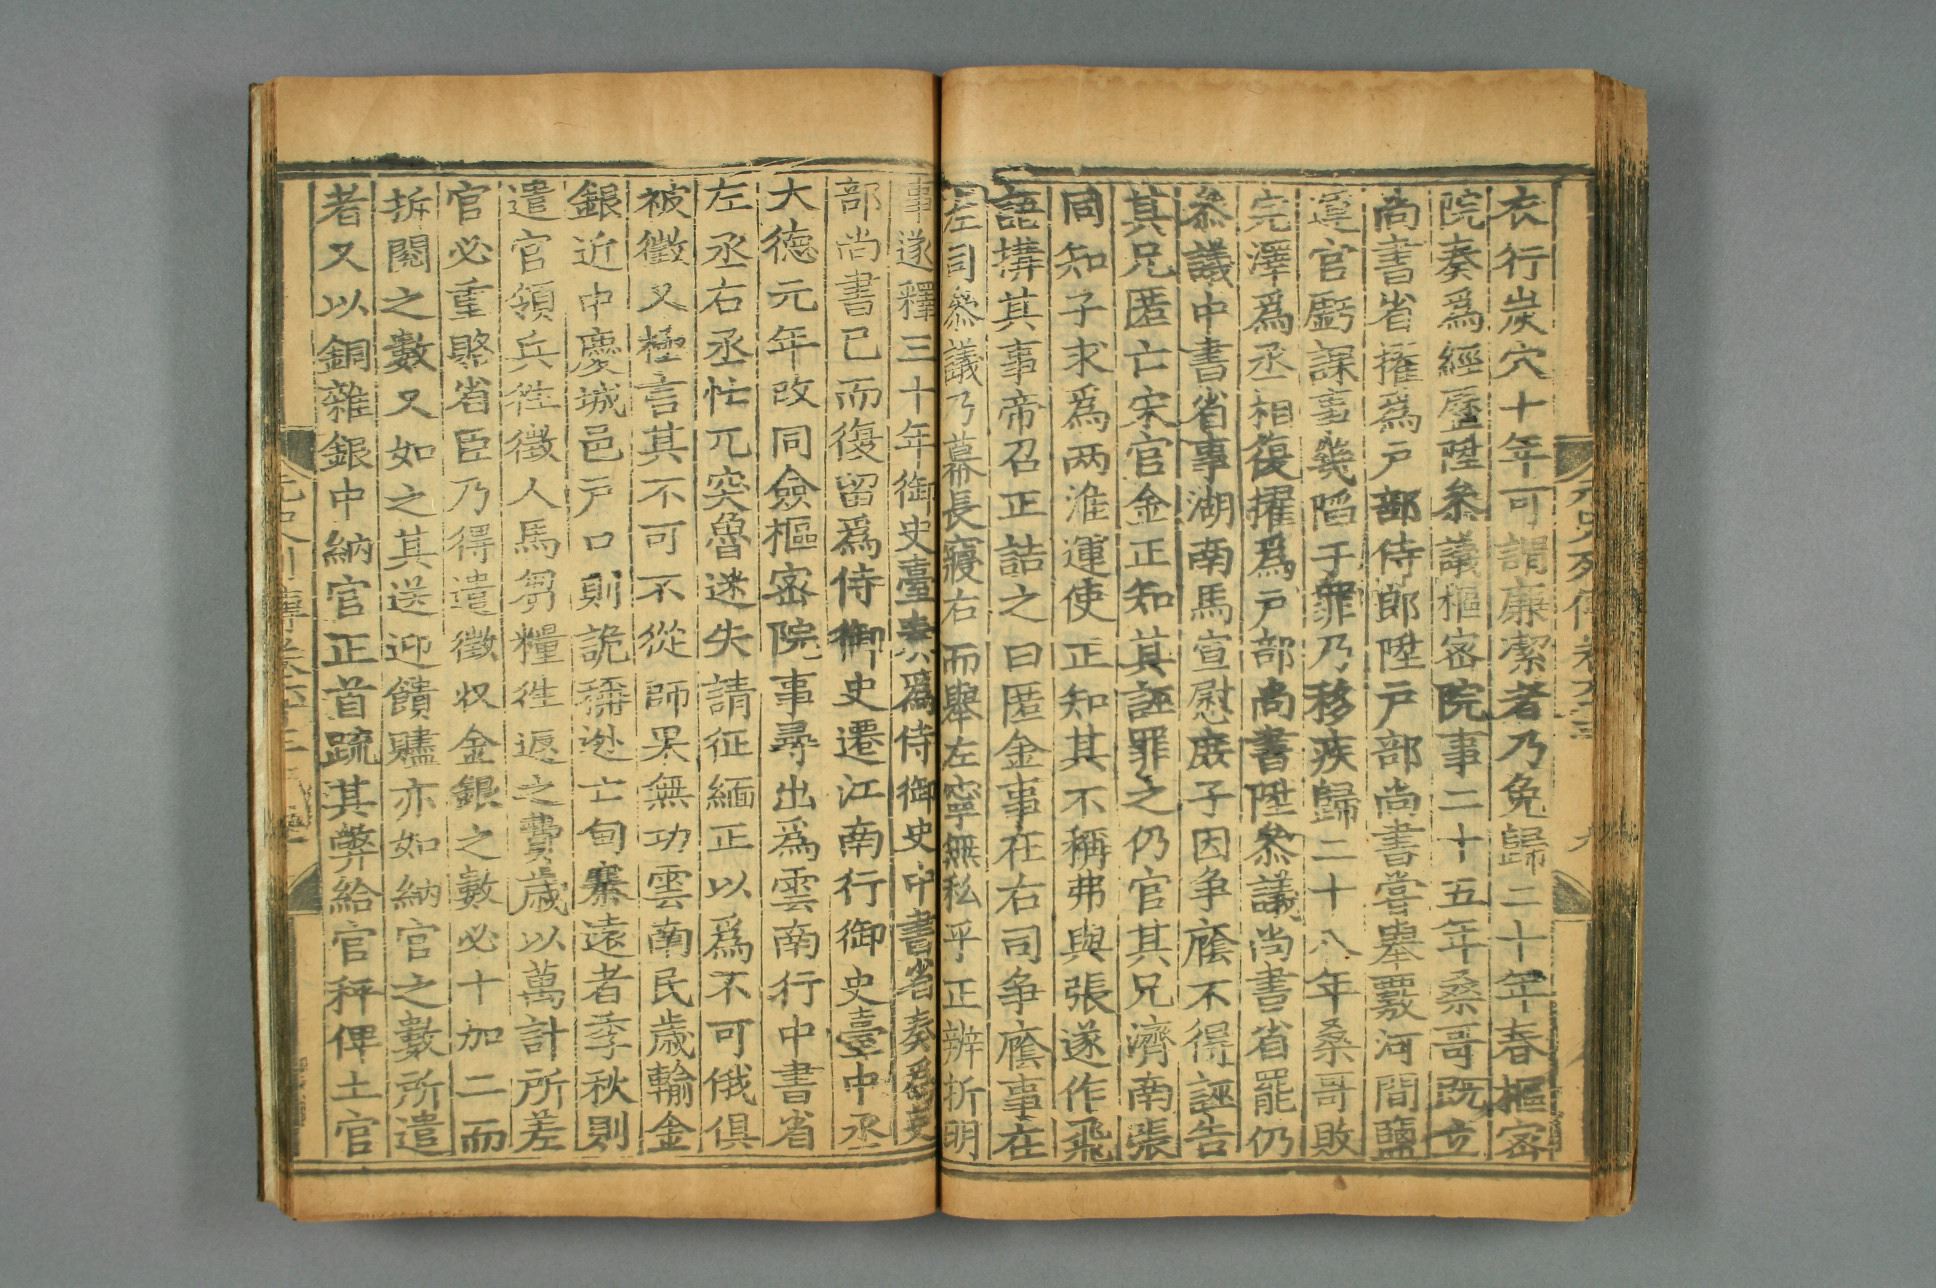 衣行炭穴十年可謂廉潔者乃免歸二十年春樞密
院奏爲經歷陞叅議樞密院事二十五年桑哥既立
尚書省擢爲戶部侍郎陞戶部尚書嘗舉覈河間鹽
運官虧課事幾陷于罪乃移疾歸二十八年桑哥敗
完澤爲丞相復擢爲戶部尚書陞叅議尚書省罷仍
叅議中書省事湖南馬宣慰庶子因争廕不得誣告
其兄匿亡宋官金正知其誣罪之仍官其兄濟南張
同知子求爲两淮運使正知其不稱弗與張遂作飛
語搆其事帝召正詰之曰匿金事在右司争廕事在
左司叅議乃幕長寢右而舉左寧無私乎正辨析明
事遂釋三十年御史臺奏爲侍御史中書省奏爲吏
部尚書已而復留爲侍御史遷江南行御史臺中丞
大德元年改同僉樞密院事尋出爲雲南行中書省
左丞右丞忙兀突魯迷失請征緬正以爲不可俄俱
被徵又極言其不可不從師果無功雲南民歲輸金
銀近中慶城邑戶口則詭稱逃亡甸寨遠者季秋則
遣官領兵徃徵人馬芻糧徃返之費歳以萬計所差
官必重賂省臣乃得遣徵收金銀之數必十加二而
拆閱之數又如之其送迎饋贐亦如納官之數所遣
者又以銅雜銀中納官正首疏其弊給官秤俾土官
元史列傳卷六十三